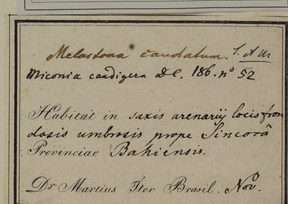 Melastoma caudatum.
Miconia caudigera DC. 186. nº 52
Habitat in saxis arenarij locis fron
dosis umbrosis prope Sincorâ
Provinciae Bahiensis.
Dr Martius Iter Brasil. Nov.º